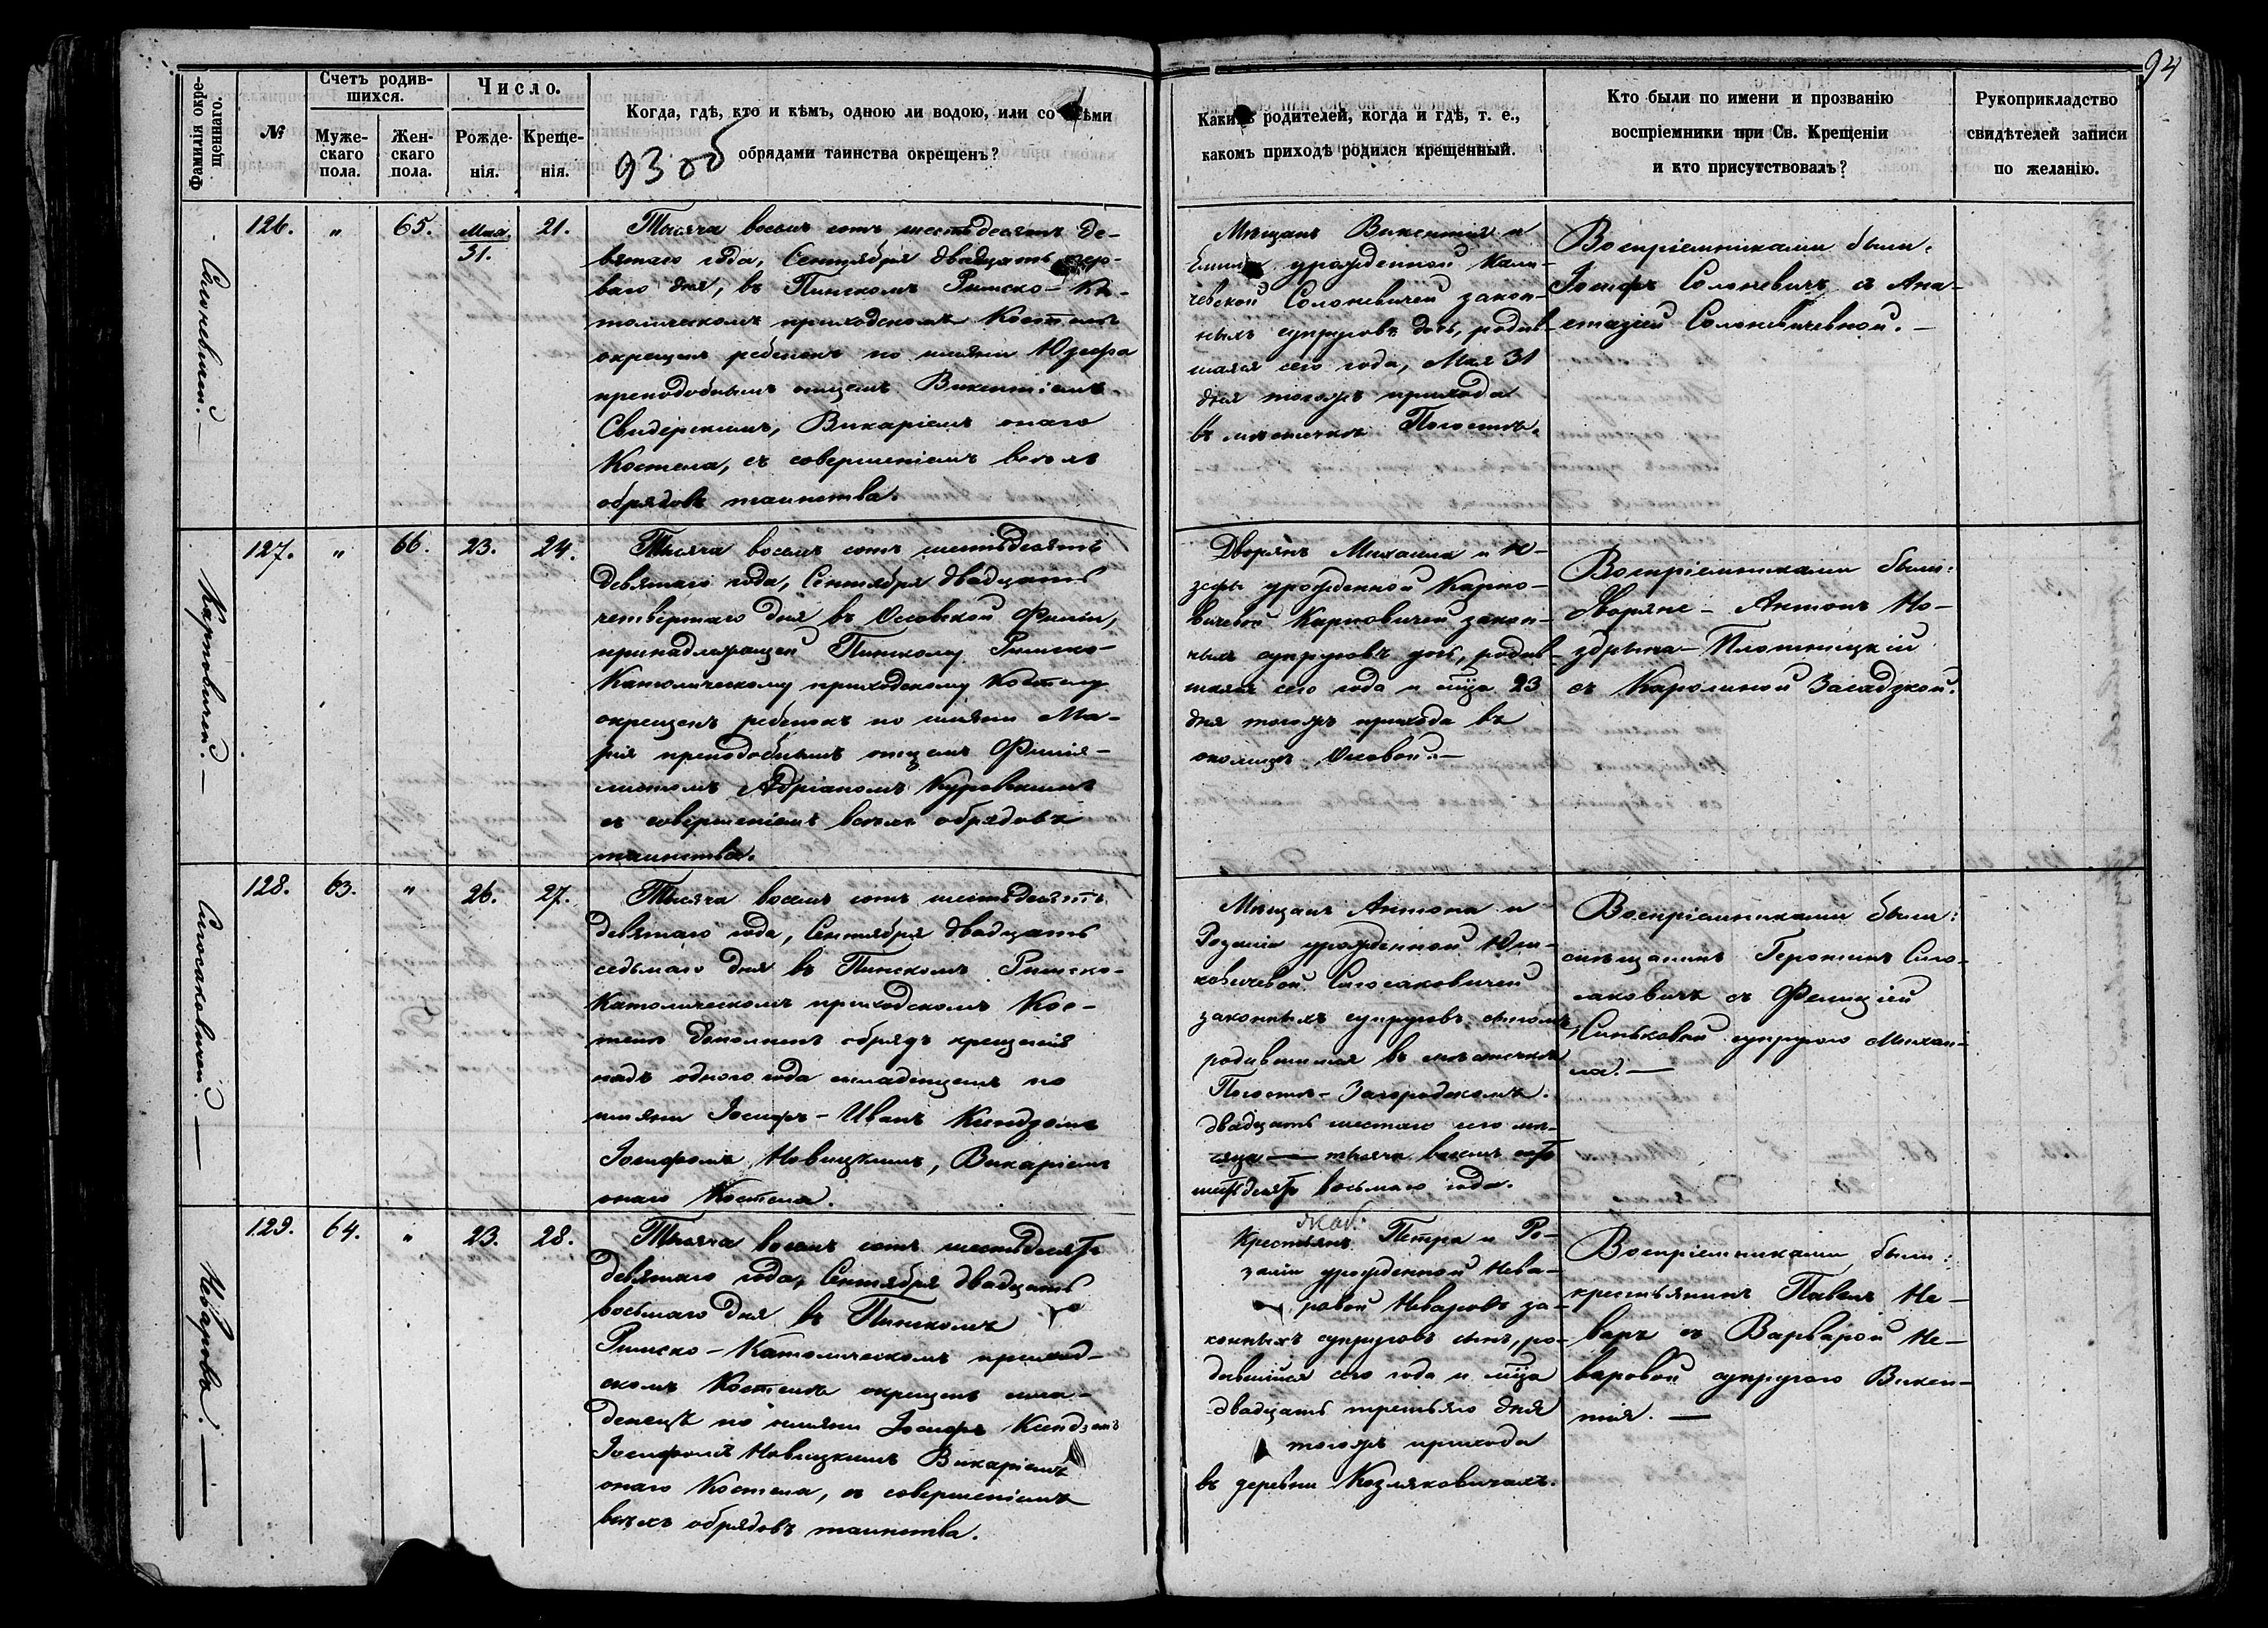 94
Фамилія окре-
щеннаго.
№
Счетъ родив-
шихся.
Муже-
скаго
пола.
Жен-
скаго
пола.
Число.
Рожде-
нія.
Креще-
нія.
Когда, гдѣ, кто и кѣмъ, одною ли водою, или со всѣми
обрядами таинства окрещенъ?
93 об
Какихъ родителей, когда и гдѣ, т. е.,
какомъ приходѣ родился крещенный.
Кто были по имени и прозванію
воспріемники при Св. Крещеніи
и кто присутствовалъ?
Рукоприкладство
свидѣтелей записи
по желанію.
126.
"
65.
Мая
31.
21.
Тысяча восемь сотъ шестьдесятъ де-
вятаго года, Сентября двадцать пер-
ваго дня, въ Пинскомъ Римско-Ка-
толическомъ приходскомъ Костелѣ
окрещенъ ребенокъ по имяни Юзефа
преподобнымъ отцемъ Викентіемъ
Свидерскимъ, Викаріемъ онаго
Костела, съ совершеніемъ всѣхъ
обрядовъ таинства.
Мѣщанъ Викентія и
урожденной
Солоневичей закон-
ныхъ супруговъ дочь, родив-
шаяся сего года, Мая 31
дня тогожъ прихода
въ мѣстечкѣ Погостѣ.
Воспріемниками были:
Іосифъ Солоневичъ съ Ана-
стазіей Солоневичевной.—
127.
"
66.
23.
24.
Карповичей.—
Тысяча восемь сотъ шестьдесятъ
девятаго года, Сентября двадцать
четвертаго дня въ Осовской Филіи,
принадлежащей Пинскому Римско-
Католическому приходскому Костелу
окрещенъ ребенокъ по имяни Ма-
рія преподобнымъ отцемъ Филія-
листомъ Адріаномъ Куровскимъ
съ совершеніемъ всѣхъ обрядовъ
таинства.
Дворянъ Михаила и Ю-
зефы урожденной Карпо-
вичевой Карповичей закон-
ныхъ супруговъ дочь, родив-
шаяся сего года и мѣсяца 23
дня тогожъ прихода въ
околицѣ Осовой.—
Воспріемниками были:
Дворяне - Антонъ
Плотницкій
съ Каролиной Засадзкой.
128.
63.
"
26.
27.
Тысяча восемь сотъ шестьдесятъ
девятаго года, Сентября двадцать
седьмаго дня въ Пинскомъ Римско-
Католическомъ приходскомъ Кос-
телѣ дополненъ обрядъ крещенія
надъ одного года младенцемъ по
имяни Іосифъ-Иванъ Ксендзомъ
Іосифомъ Новицкимъ, Викаріемъ
онаго Костела.
Мѣщанъ Антона и
Розаліи урожденной Юш-
кевичевой
законныхъ супруговъ сыномъ
родившимся въ мѣстечкѣ
Погостѣ-Загородскомъ.
двадцать шестаго сего мѣ-
сяца — тысяча восемь сотъ
шестьдесятъ восьмаго года.
Воспріемниками были:
мѣщанинъ Геронимъ
съ Фелиціей
супругою Михаи-
ла.—
129.
64.
"
23.
28.
Неварова.—
Тысяча восемь сотъ шестьдесятъ
девятаго года, Сентября двадцать
восьмаго дня въ Пинскомъ
Римско-Католическомъ приход-
скомъ Костелѣ окрещенъ мла-
денецъ по имяни Іосифъ Ксендзомъ
Іосифомъ Новицкимъ Викаріемъ
онаго Костела, съ совершеніемъ
всѣхъ обрядовъ таинства.
Крестьянъ Петра и Ро-
заліи урожденной Нева-
ровой Неваровъ за-
конныхъ супруговъ сынъ, ро-
дившійся сего года и мѣсяца
двадцать третьяго дня
тогожъ прихода
въ деревни Козляковичахъ.
Воспріемниками были:
крестьянинъ Павелъ Не-
варъ съ Варварой Не-
варовой супругою Викен-
тія.—